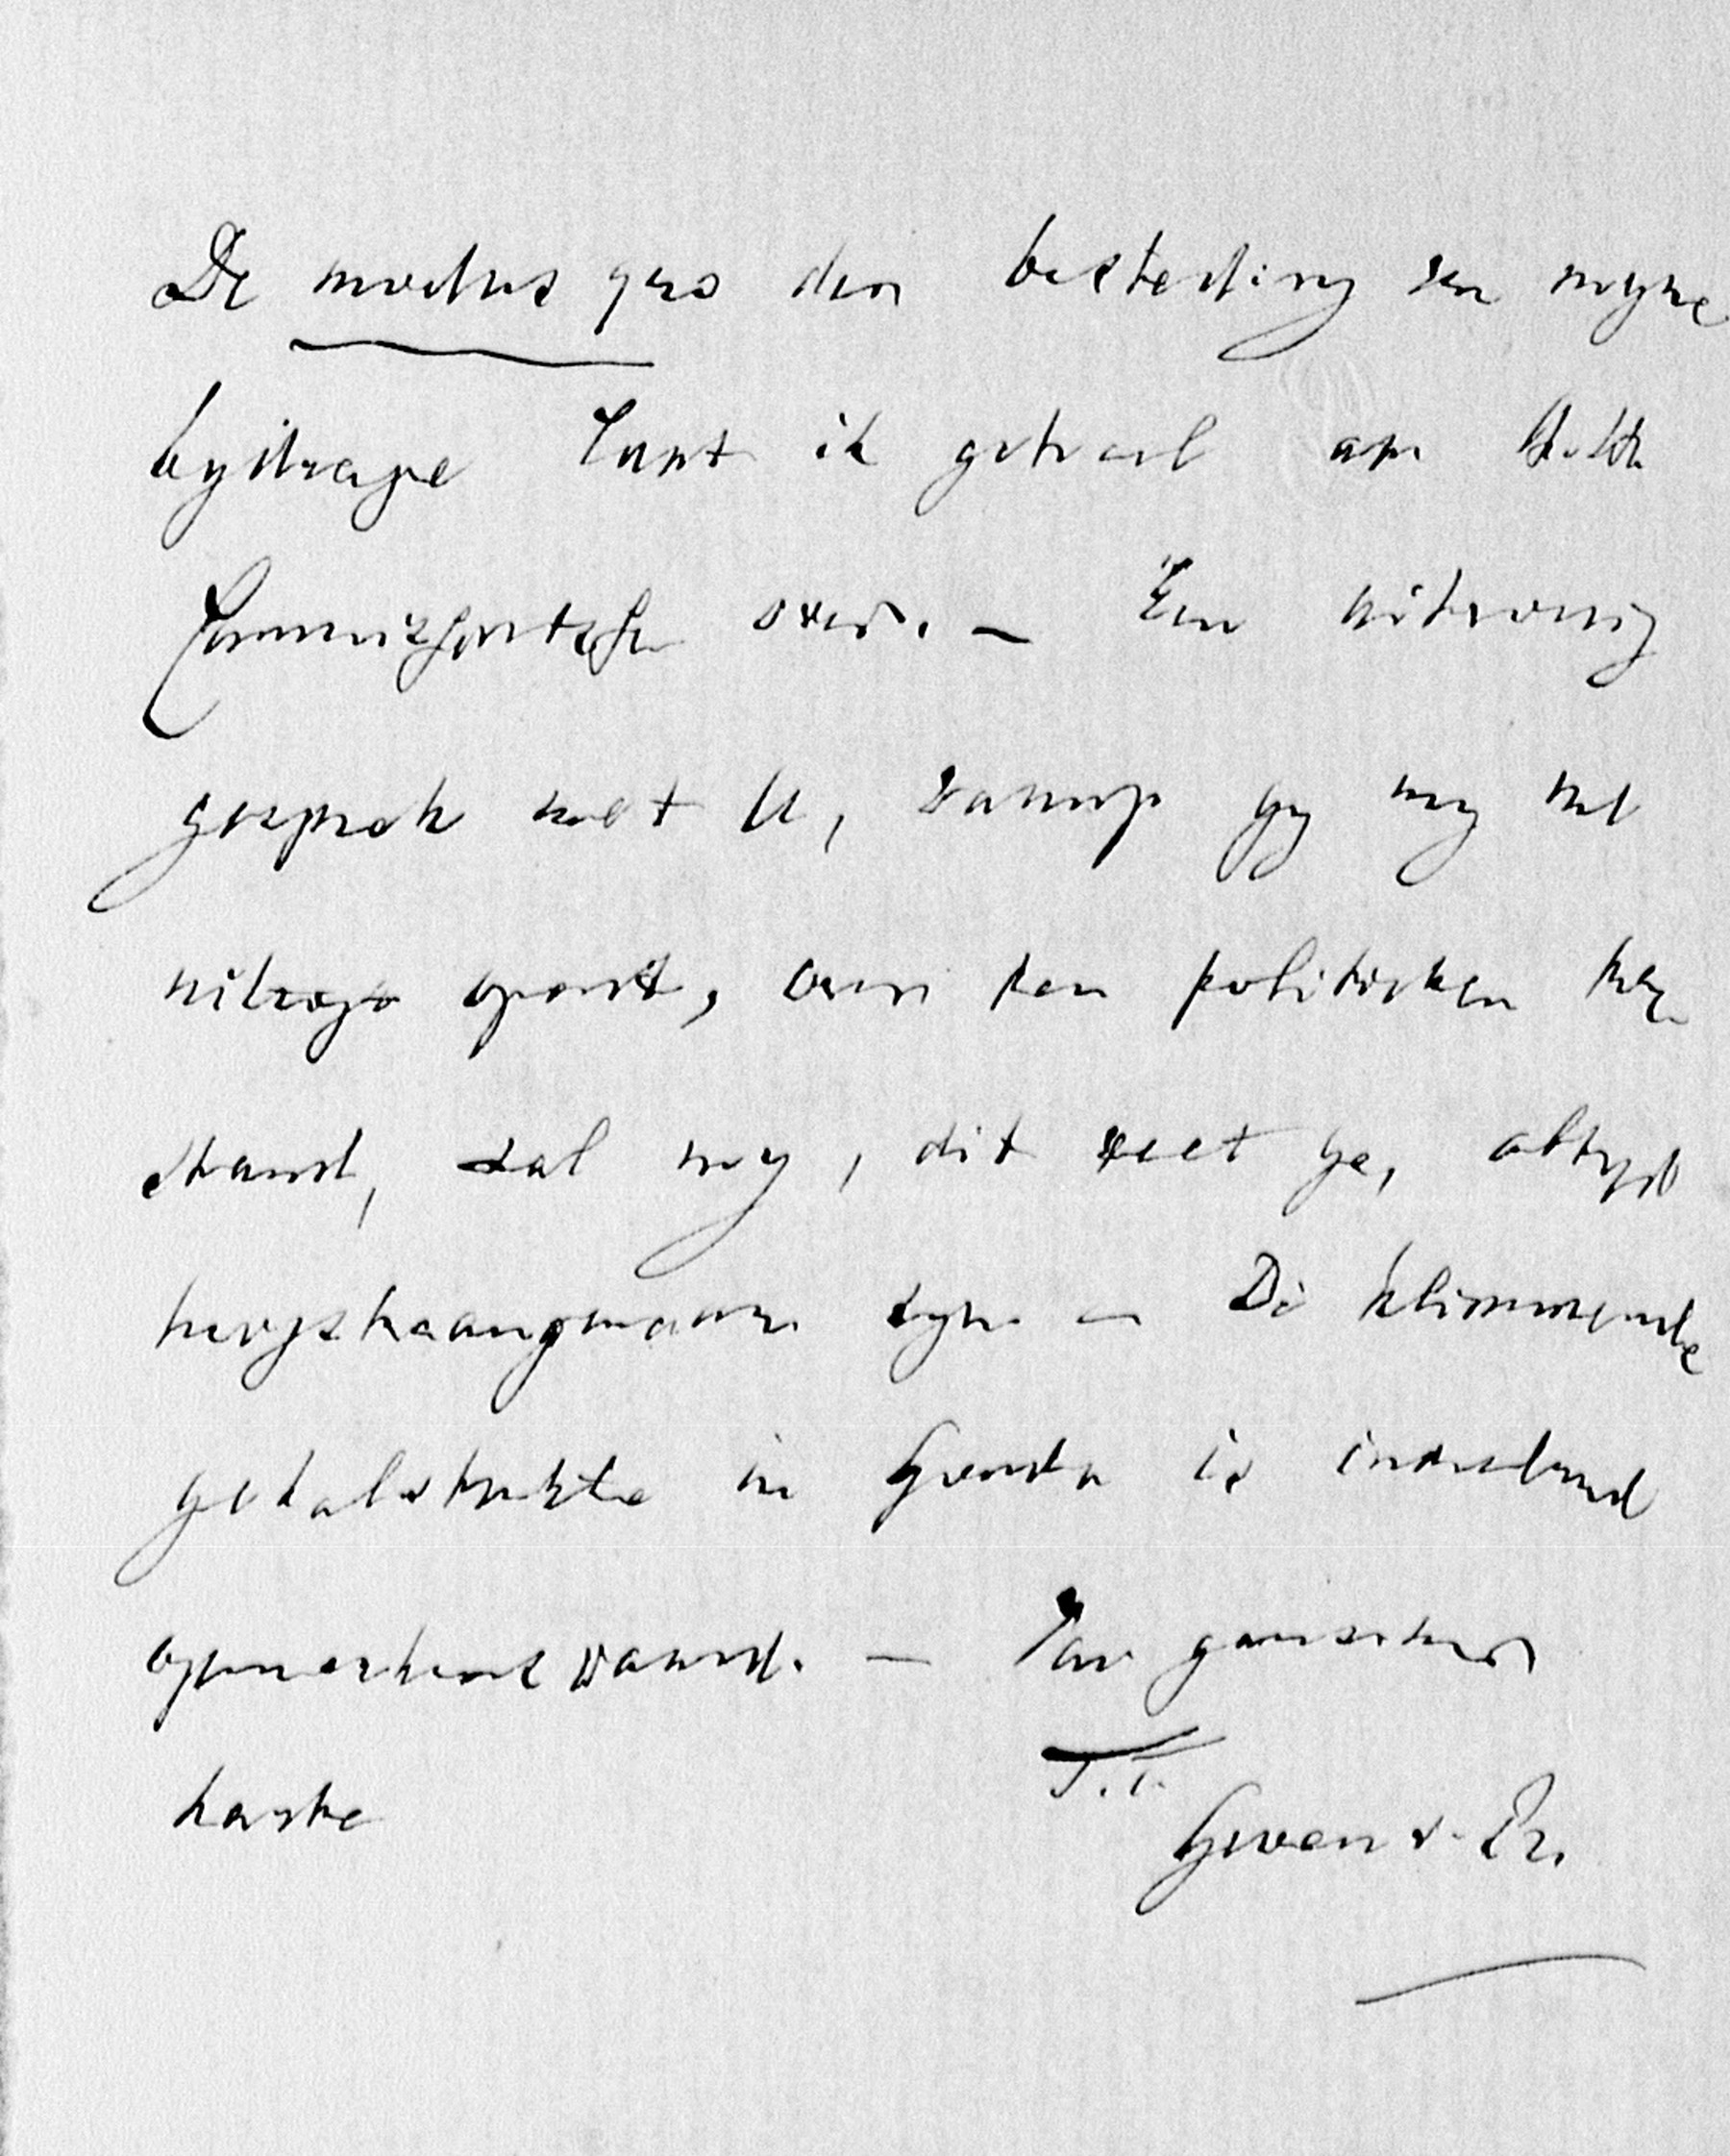 De modus quo der besteding van myne
bydrage laat ik geheel aan
over. — Een uitvoerig
gesprek met U, waarop gy my het
uitzigt opent, over den politieken toe
stand, zal my, dit weet ge, altyd
hoogstaangenaam zyn — De klimmende
getalsterkte in Gouda is inderdaad
opmerkenswaard. — Van ganscher
harte
T.T.
Groen v. Pr.